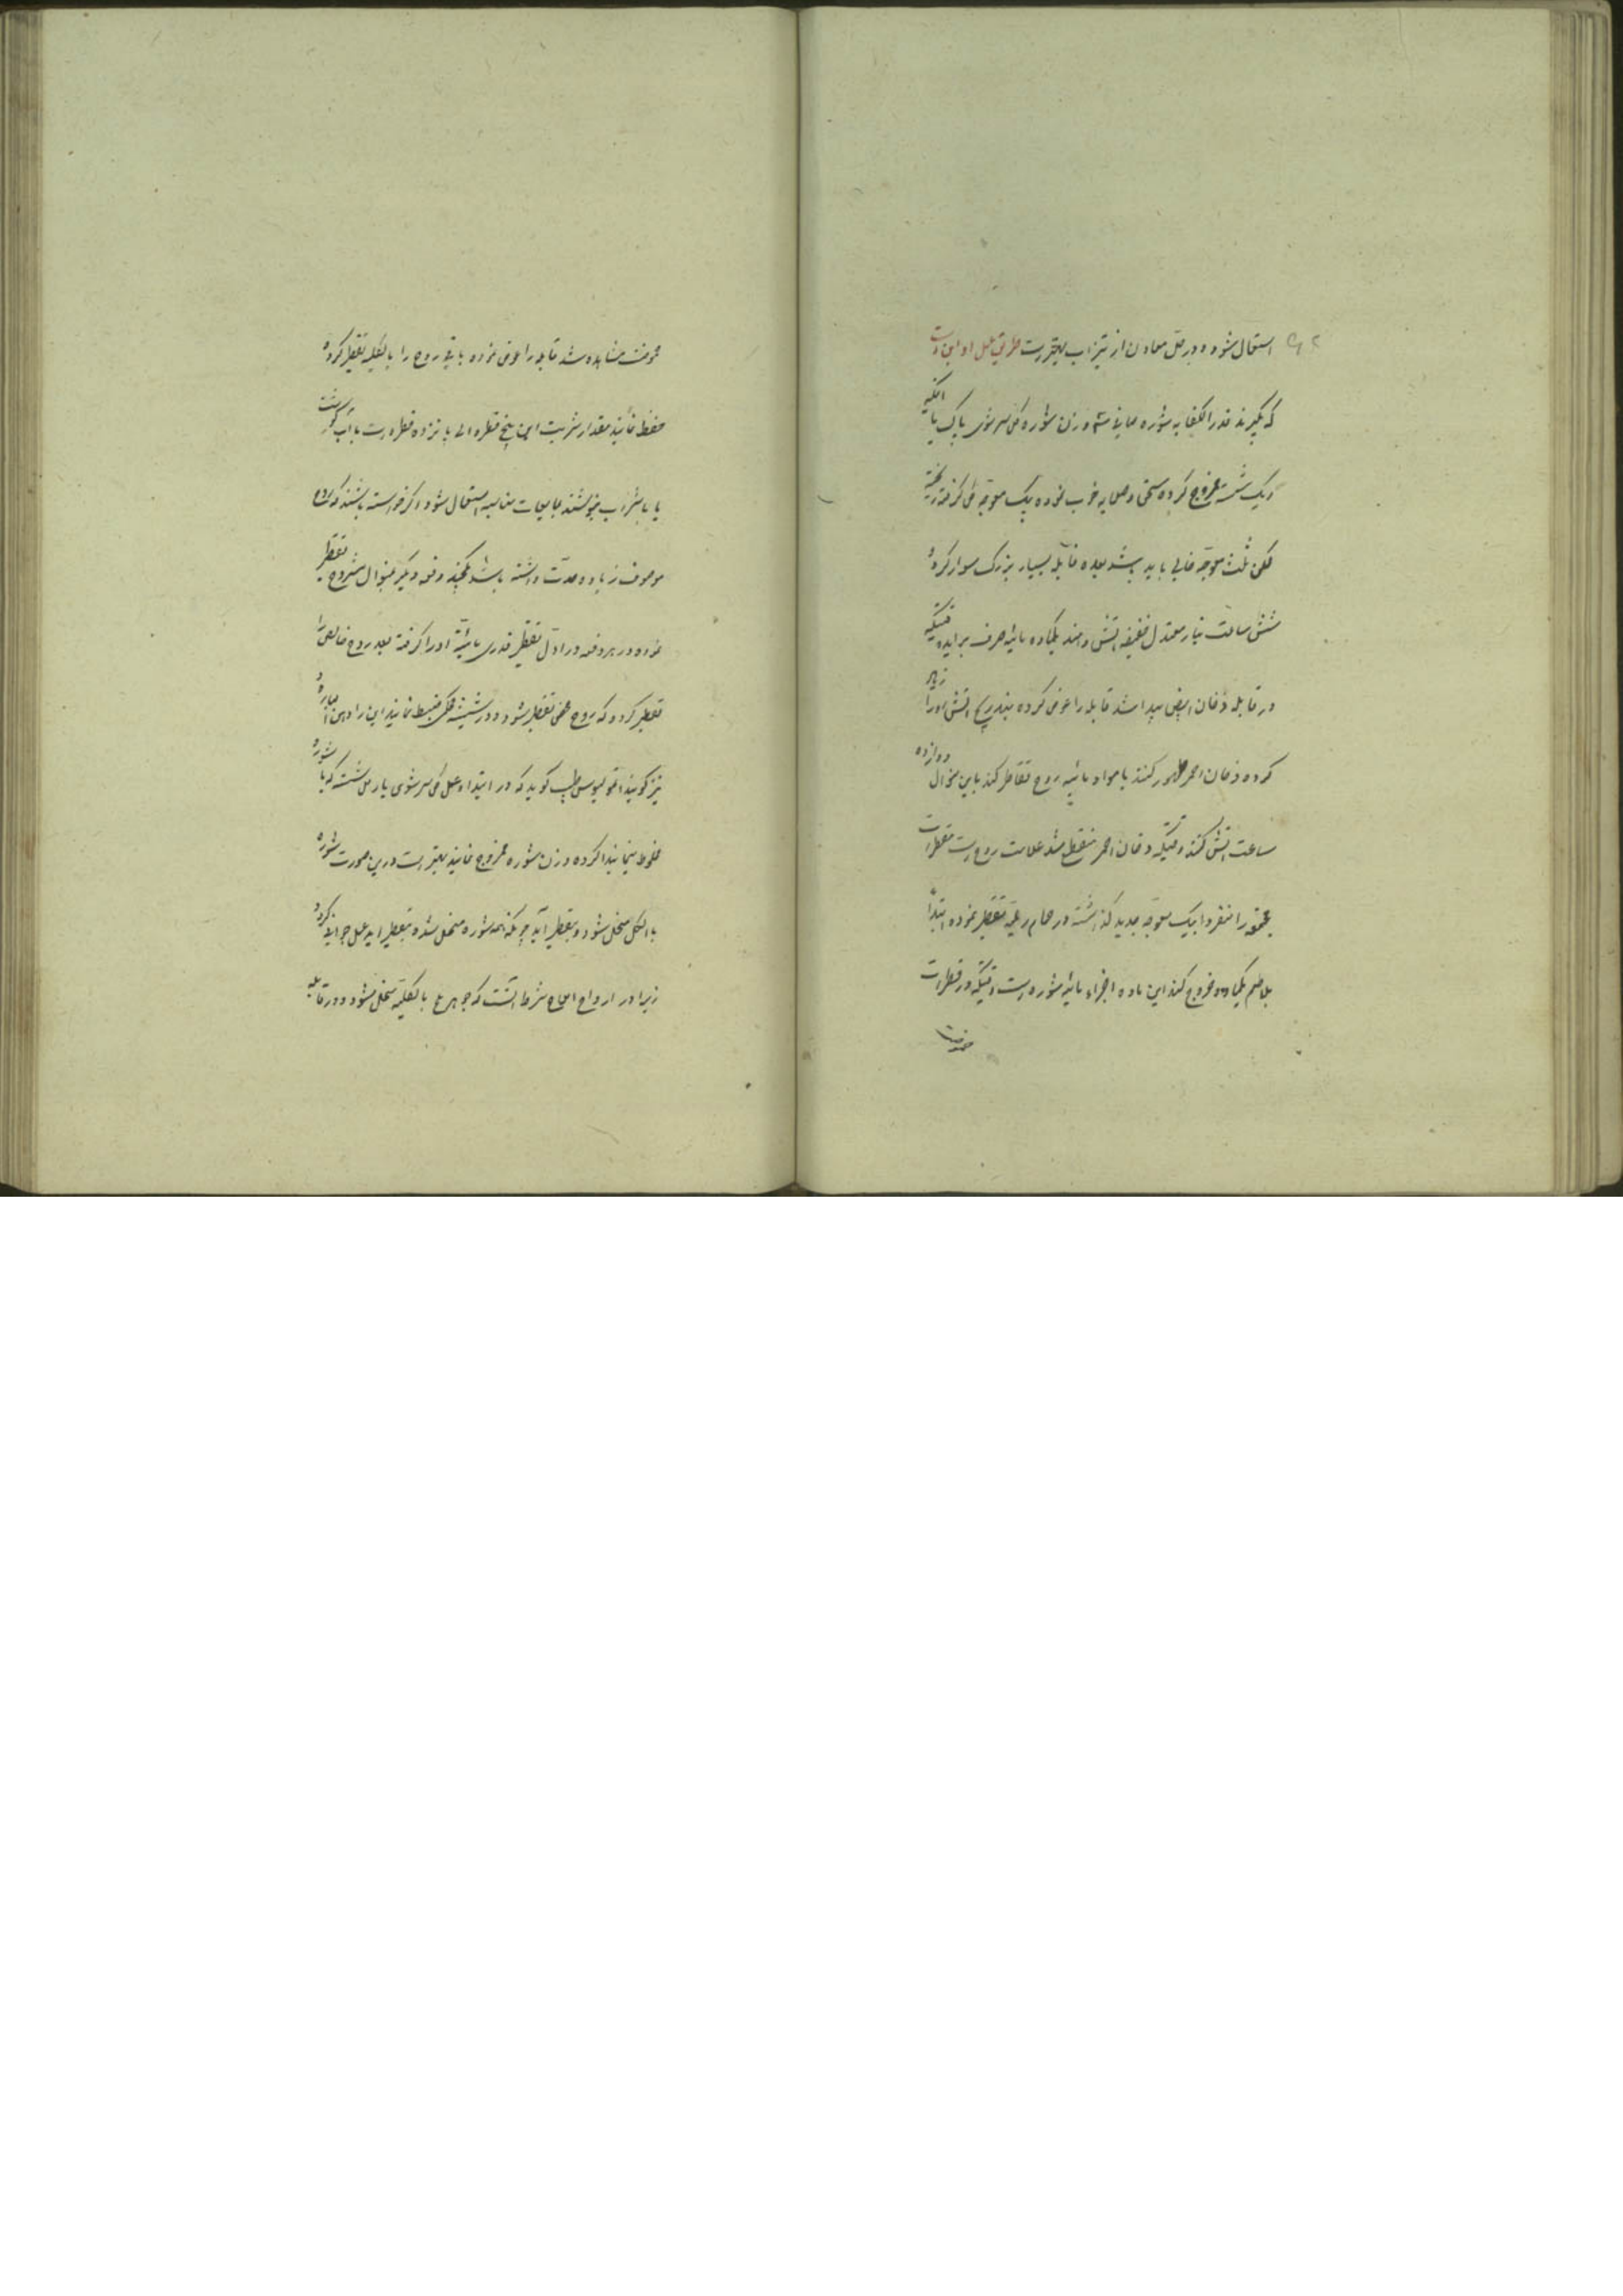 استعمال شود و در حل معادن از تیزاب بهتر است طریق عمل او این است
که بگیرند قدر الکفایه شوره صافی سه وزن شوره گل سرشوی پاک یا انکه
ریک شسته ممزوج کرده سحق و صلایه خوب نموده بیک معوجه گلی گرفته ریخته
لکن ثلث معوجه خالی باید باشد بعده قابله بسیار بزرگ سوار کرده
شش ساعت بنار معتدل خفیفه اتش دهند یکماده مائیه صرف براید وقتیکه
در قابله دخان ابیض پیدا شد قابله را عوض کرده بتدریج اتش او را زیاد
کرده دخان احمر ظهور کند با مواد مائیه روح تقاطر کند باین منوال دوازده
ساعت اتش کند وقتیکه دخان احمر منقطع شد علامت روح است مقطرات
مجتمعه را منفردا بیک معوجه جدید گذاشته در حمام رملیه تقطیر نموده ابتدا
بلا طعم یکماده خروج کند این ماده اجزاء مائیه شوره است وقتیکه در قطرات
حموضت
حموضت مشاهده شد قابله را عوض نموده باقی روح را بالکلیه تقطیر کرده
حفظ نمایند مقدار شربت این پنج قطره الی پانزده قطره است با آب گوشت
یا با شراب خوشته با مایعات مناسبه استعمال شود اگر خواسته باشند که روح
موصوف زیاده حدت داشته باشد چند دفعه دیگر بمنوال مشروح تقطیر
نموده در هر دفعه در اول تقطیر قدری مائیة او را گرفته بعد روح خالص را
تقطیر کرده که روح محض تقطیر شود و در شیشه محکم ضبط نمایند این را دهن
نیز گویند طبیب گوید که در ابتداء عمل گل سرشوی یا رمل شسته که با شوره
مخلوط مینمایند اگر ده وزن شوره ممزوج نمایند بهتر است درین صورت شوره
با الکل منحل شود و بتقطیر آید چونکه همه شوره منحل شده بتقطیر اید عمل
زیرا در ارواح املاح شرط انست که جوهر ملح بالکلیه منحل شود و در قابله